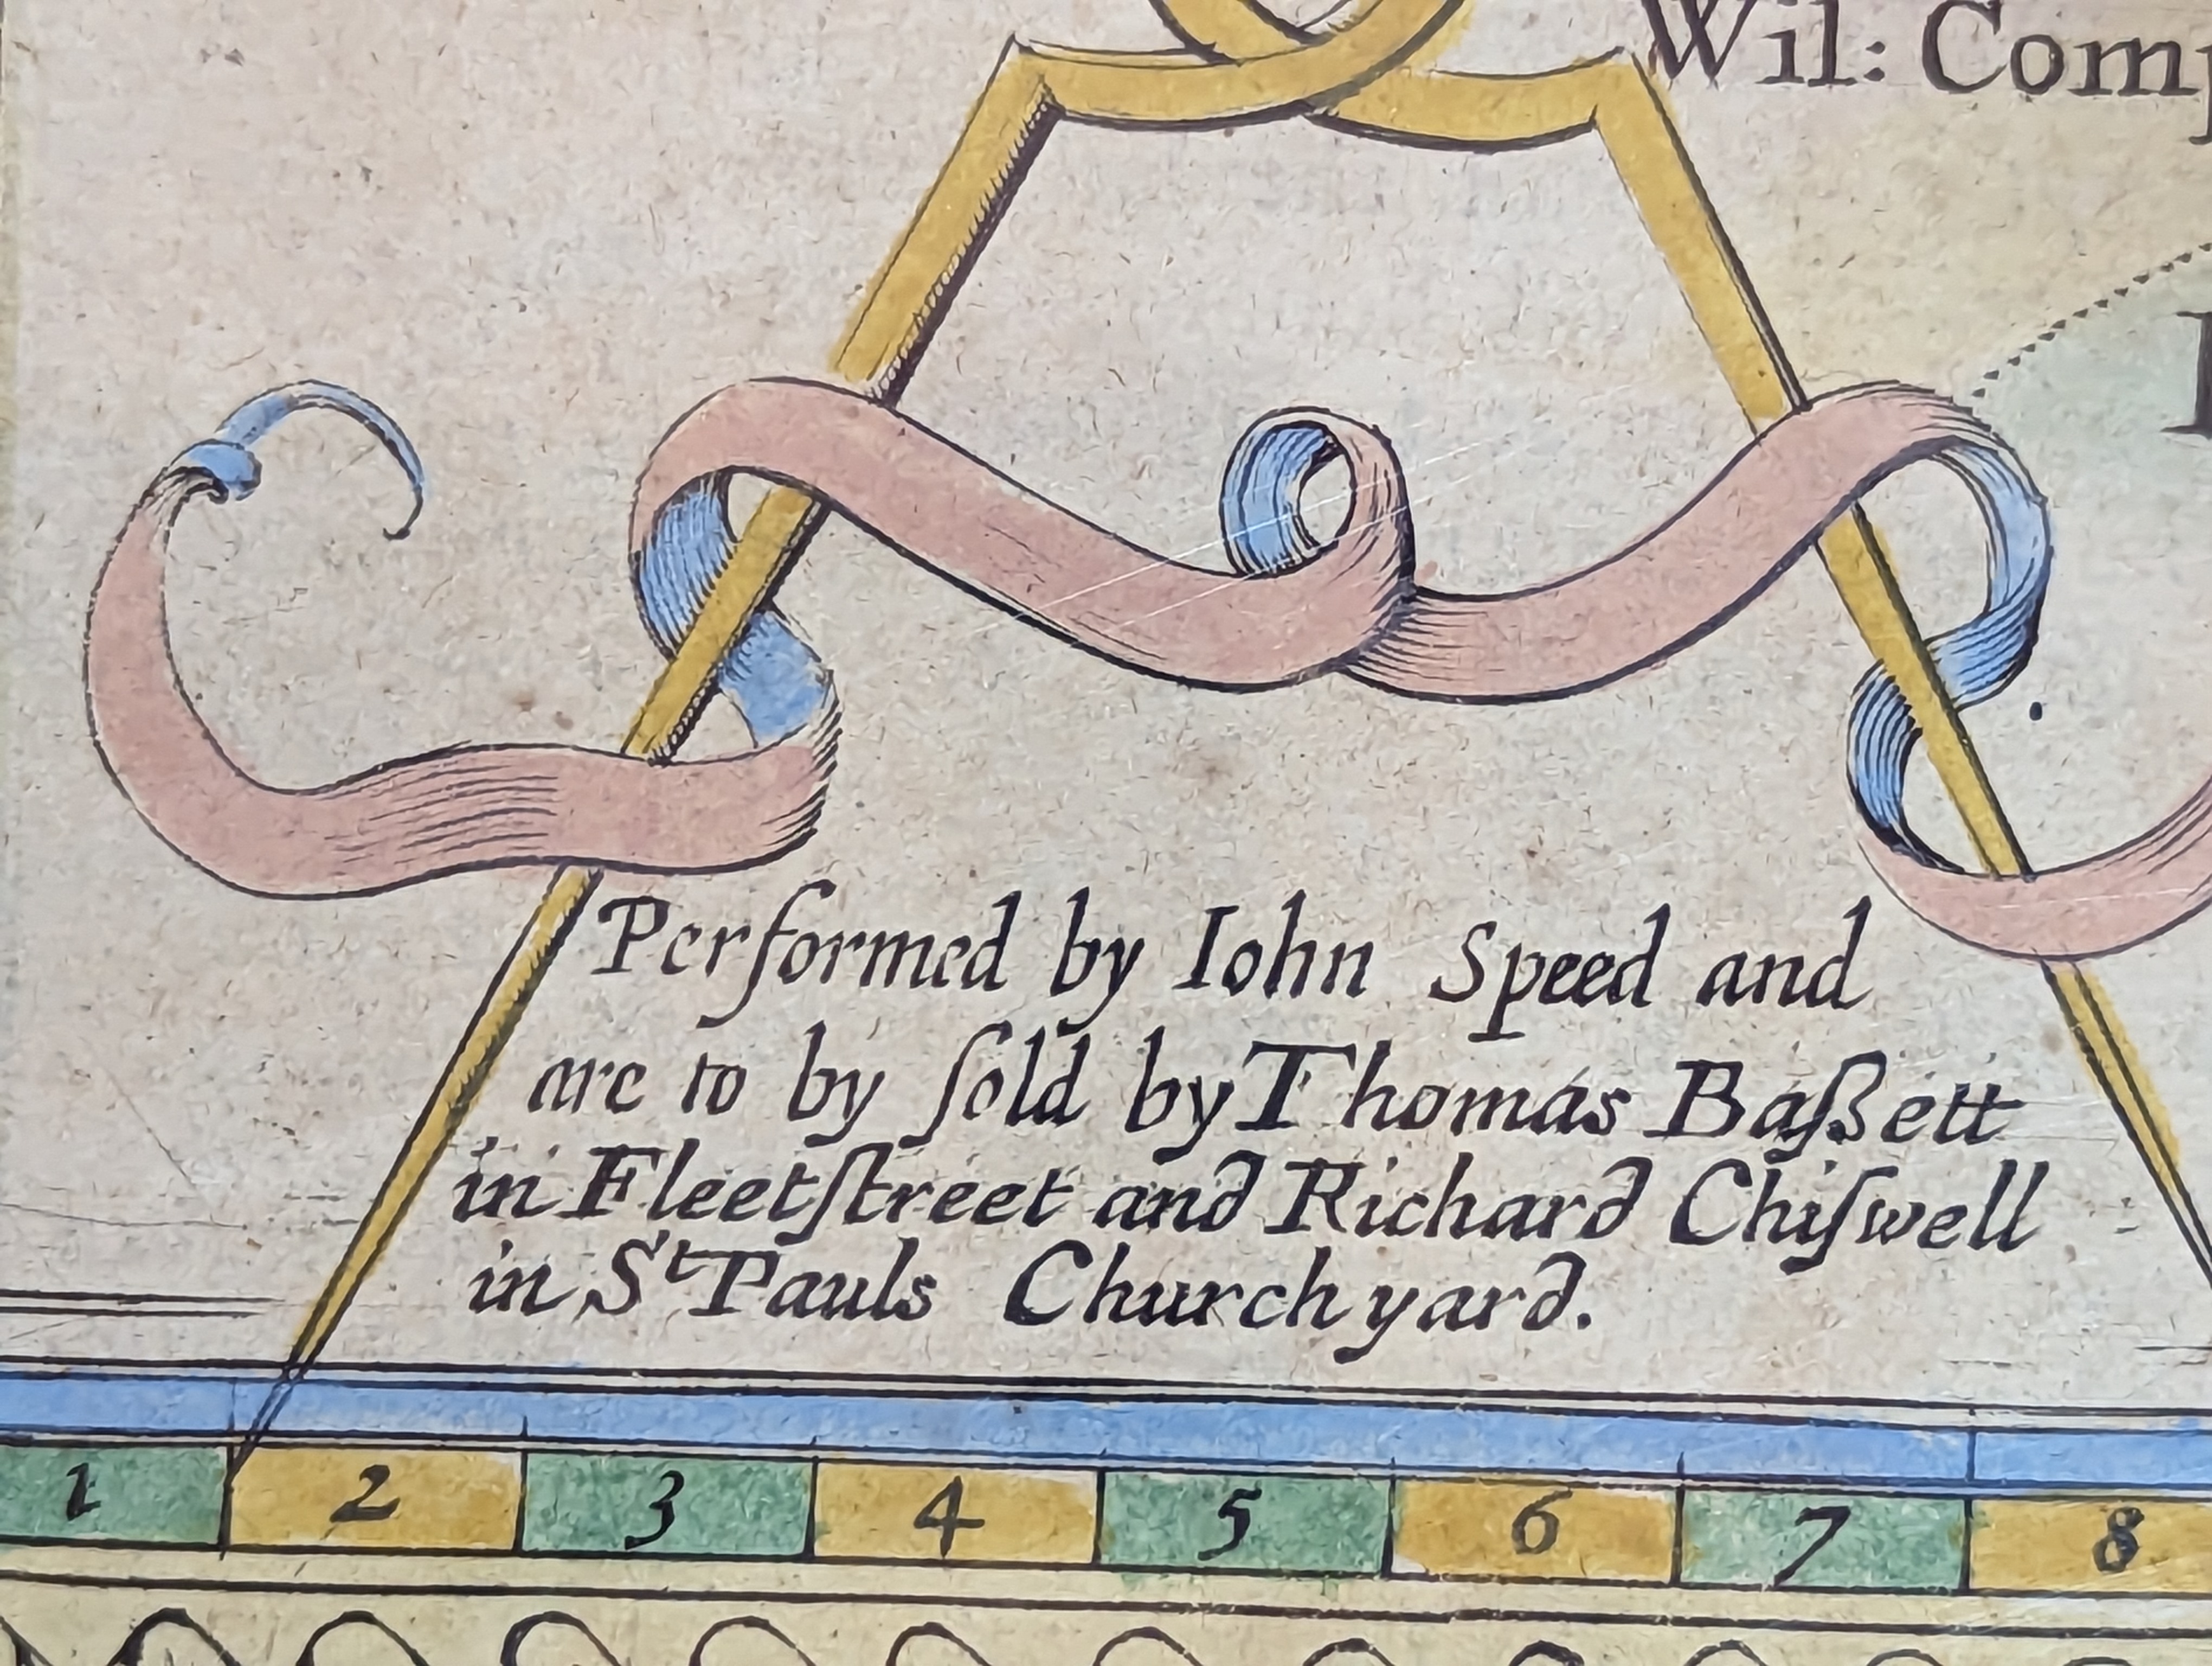 Wil: Comp
Performed by Iohn Speed and
are to by ſold by Thomas Baſsett
in Fleetſtreet and Richard Chiſwell
in St Pauls Church yard.
1 2 3 4 5 6 7 8